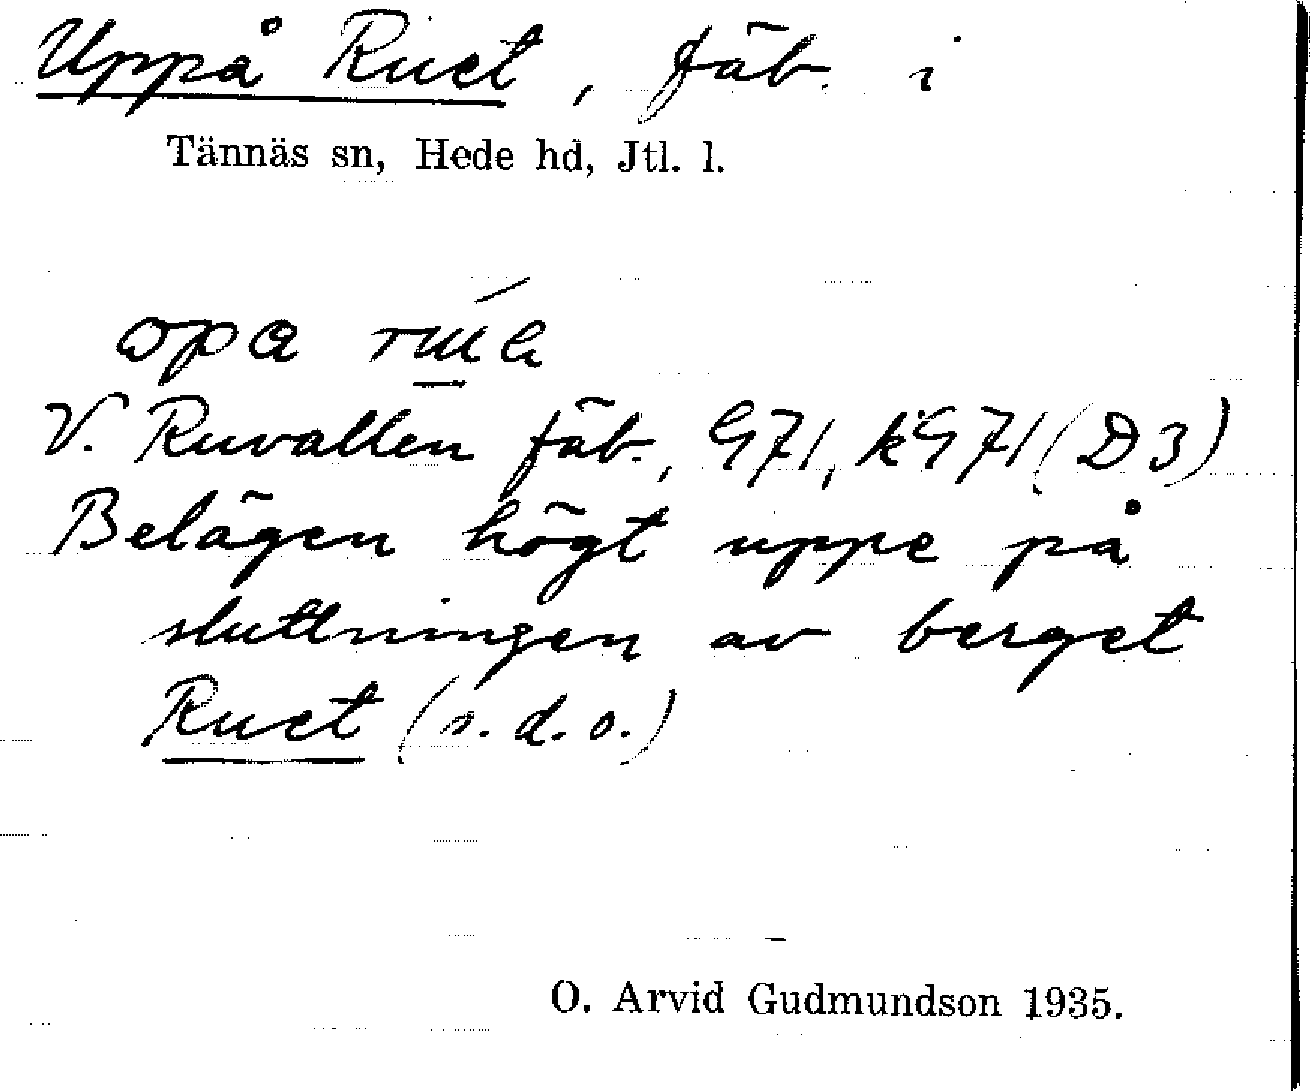 Uppå Ruet, fäb. i
Tännäs sn, Hede hd, Jtl. l.
V. Ruvallen fäb., G71, kG71 (D3)
Belägen högt uppe på
sluttningen av berget
Ruet (s.d.o.)
O. Arvid Gudmundson 1935.